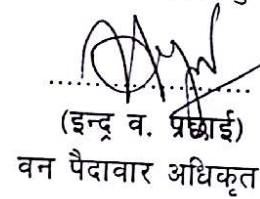 (इन्द्र व. प्रछाई)
वन पैदावार अधिकृत